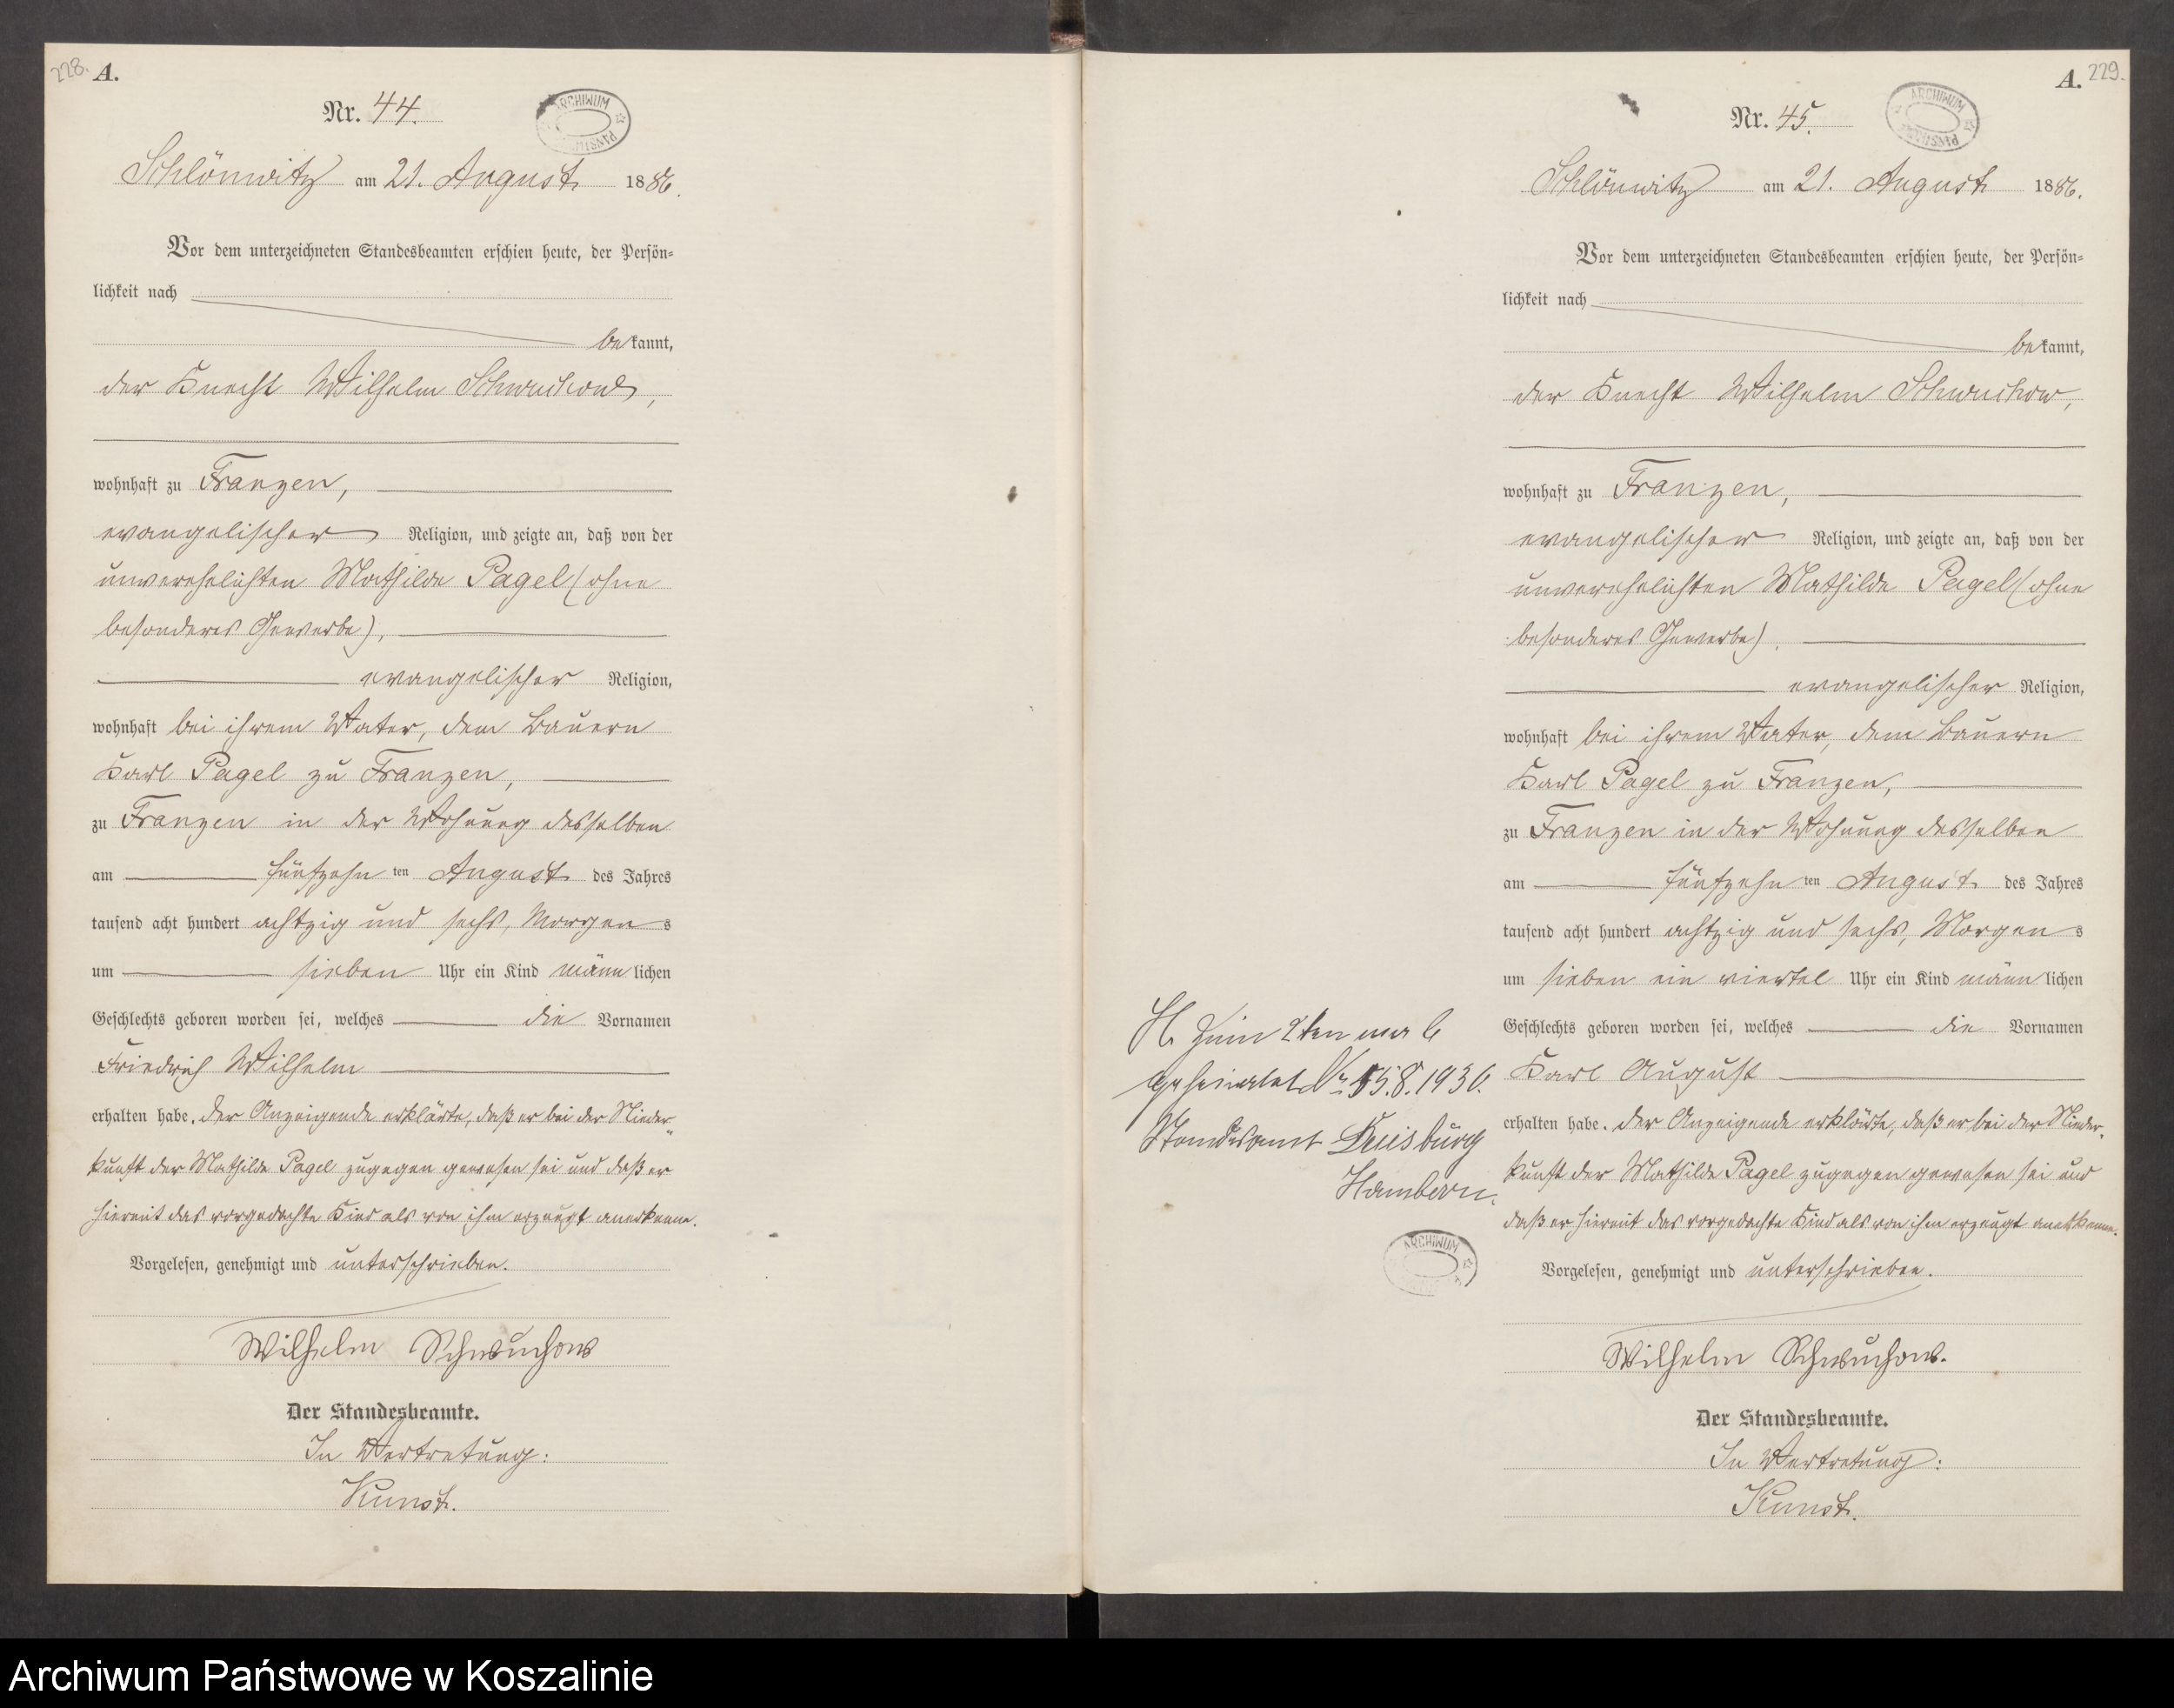 228. A.
Nr. 44.
ARCHIWUM
Schlönwitz am 21. August 1886.
Vor dem unterzeichneten Standesbeamten erschien heute, der Persön-
lichkeit nach
bekannt,
der Knecht Wilhelm Schwuchow,
wohnhaft zu Franzen,
evangelischer Religion, und zeigte an, daß von der
unverehelichten Mathilde Pagel (ohne
besonderes Gewerbe),
evangelischer Religion,
wohnhaft bei ihrem Vater, dem Bauern
Karl Pagel zu Franzen,
zu Franzen in der Wohnung desselben
am fünfzehn ten August des Jahres
tausend acht hundert achtzig und sechs, Morgens
um sieben Uhr ein Kind männlichen
Geschlechts geboren worden sei, welches die Vornamen
Friedrich Wilhelm
erhalten habe. Der Anzeigende erklärte, daß er bei der Nieder-
kunft der Mathilde Pagel zugegen gewesen sei und daß er
hiermit das vorgedachte Kind als von ihm erzeugt anerkenne.
Vorgelesen, genehmigt und unterschrieben.
Wilhelm Schwuchow
Der Standesbeamte.
In Vertretung:
Kunst.
A. 229.
Nr. 45.
ARCHIWUM
Schlönwitz am 21. August 1886.
Vor dem unterzeichneten Standesbeamten erschien heute, der Persön-
lichkeit nach
bekannt,
der Knecht Wilhelm Schwuchow,
wohnhaft zu Franzen,
evangelischer Religion, und zeigte an, daß von der
unverehelichten Mathilde Pagel (ohne
besonderes Gewerbe),
evangelischer Religion,
wohnhaft bei ihrem Vater, dem Bauern
Karl Pagel zu Franzen,
zu Franzen in der Wohnung desselben
am fünfzehn ten August des Jahres
tausend acht hundert achtzig und sechs, Morgens
um sieben ein viertel Uhr ein Kind männlichen
Geschlechts geboren worden sei, welches die Vornamen
Karl August
erhalten habe. Der Anzeigende erklärte, daß er bei der Nieder-
kunft der Mathilde Pagel zugegen gewesen sei und
daß er hiermit das vorgedachte Kind als von ihm erzeugt anerkenne.
Vorgelesen, genehmigt und unterschrieben.
Wilhelm Schwuchow.
Der Standesbeamte.
In Vertretung:
Kunst.
H. Zum 2ten mal
geheiratet 15.8.1936.
Standesamt Duisburg
Hamborn.
ARCHIWUM
Archiwum Państwowe w Koszalinie